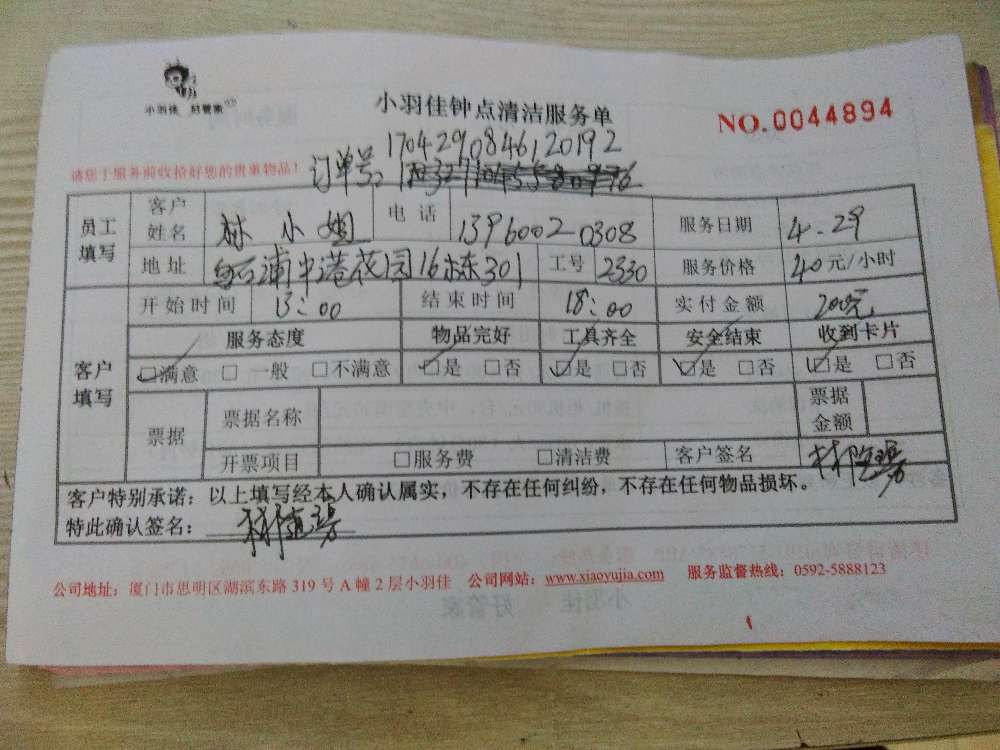 小羽佳 好管家
小羽佳钟点清洁服务单
NO.0044894
请您于服务前收拾好您的贵重物品!
订单号: 170429084612019２
员工填写 客户姓名 林小姐 电话 13960020308 服务日期 4.29
地址 浦中港花园16栋301 工号 2330 服务价格 40元/小时
客户填写 开始时间 13:00 结束时间 18:00 实付金额 200元
服务态度 物品完好 工具齐全 安全结束 收到卡片
☑满意 □一般 □不满意 ☑是 □否 ☑是 □否 ☑是 □否 ☑是 □否
票据 票据名称 票据金额
开票项目 □服务费 □清洁费 客户签名
客户特别承诺:以上填写经本人确认属实,不存在任何纠纷,不存在任何物品损坏。
特此确认签名:
公司地址:厦门市思明区湖滨东路 319 号 A 幢 2 层小羽佳 公司网站:www.xiaoyujia.com 服务监督热线:0592-5888123